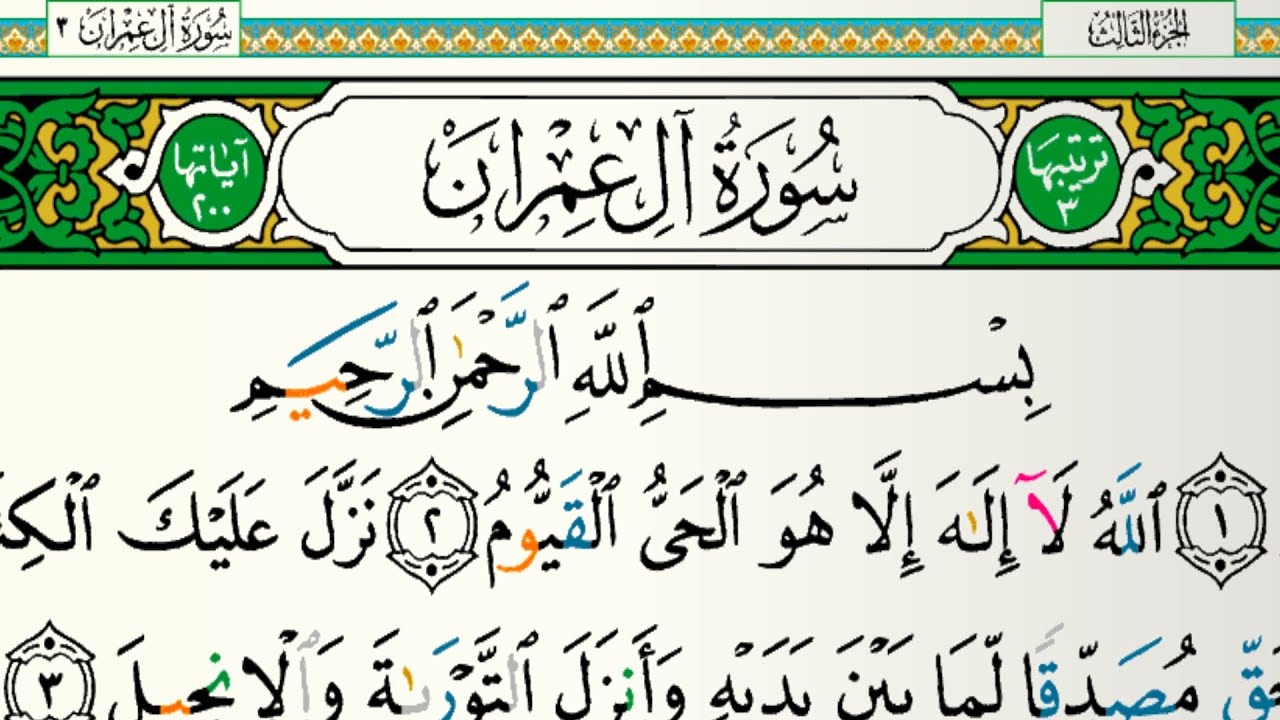 الجزء الثالث
سورة آل عمران ٣
ترتيبها ٣
سُورَةُ آلِ عِمْرَانَ
آياتها ٢٠٠
بِسْمِ ٱللَّهِ ٱلرَّحْمَٰنِ ٱلرَّحِيمِ
١ ٱللَّهُ لَآ إِلَٰهَ إِلَّا هُوَ ٱلْحَىُّ ٱلْقَيُّومُ ٢ نَزَّلَ عَلَيْكَ
مُصَدِّقًا لِّمَا بَيْنَ يَدَيْهِ وَأَنزَلَ ٱلتَّوْرَىٰةَ وَٱلْإِنجِيلَ ٣